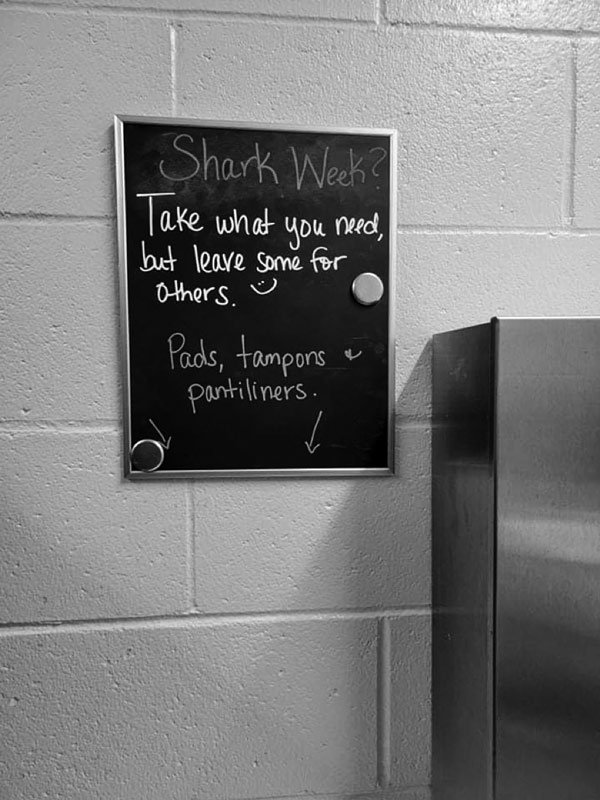 Shark Week?
Take what you need,
but leave some for
others.
Pads, tampons &
pantiliners.